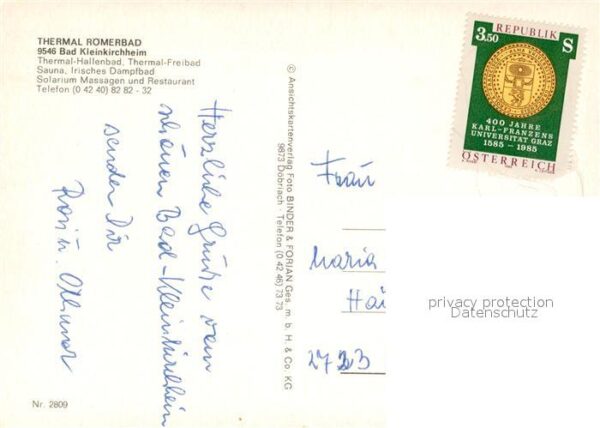 THERMAL RÖMERBAD
9546 Bad Kleinkirchheim
Thermal-Hallenbad, Thermal-Freibad
Sauna, Irisches Dampfbad
Solarium Massagen und Restaurant
Telefon (0 42 40) 82 82 - 32
Herzliche Grüße vom
schönen Bad-Kleinkirchheim
senden Dir
Rosi u. Othmar
Nr. 2809
© Ansichtskartenverlag Foto BINDER & FORJAN Ges. m. b. H. & Co. KG
9873 Döbriach - Telefon (0 42 46) 73 73
REPUBLIK
3.50 S
400 JAHRE
KARL-FRANZENS
UNIVERSITÄT GRAZ
1585 - 1985
ÖSTERREICH
Frau
Maria
privacy protection
Datenschutz